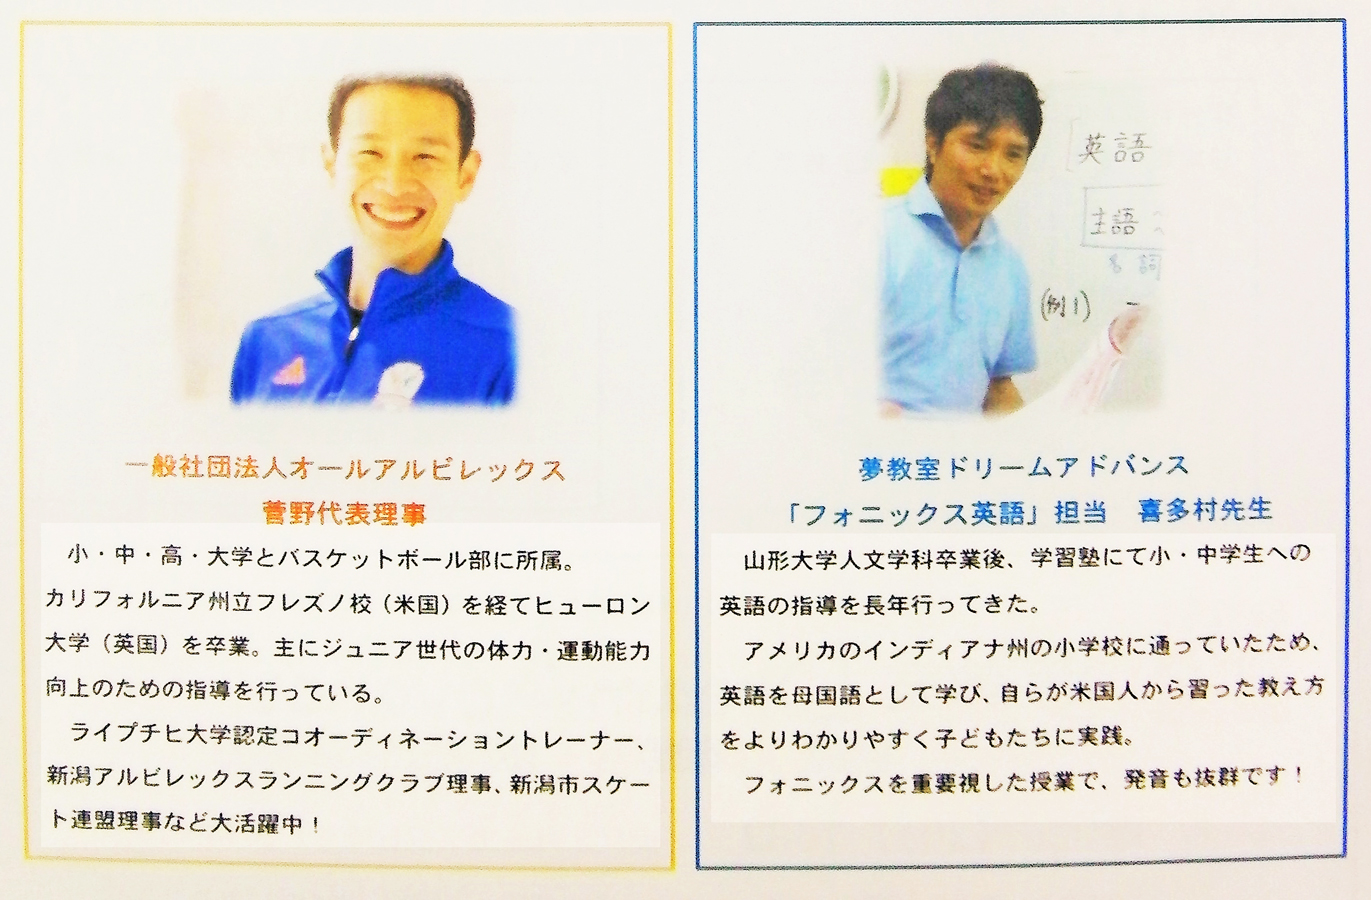 一般社団法人オールアルビレックス
菅野代表理事
小・中・高・大学とバスケットボール部に所属。
カリフォルニア州立フレズノ校（米国）を経てヒューロン
大学（英国）を卒業。主にジュニア世代の体力・運動能力
向上のための指導を行っている。
ライプチヒ大学認定コオーディネーショントレーナー、
新潟アルビレックスランニングクラブ理事、新潟市スケー
ト連盟理事など大活躍中！
英語
主語
名詞
(例1)
夢教室ドリームアドバンス
「フォニックス英語」担当　喜多村先生
山形大学人文学科卒業後、学習塾にて小・中学生への
英語の指導を長年行ってきた。
アメリカのインディアナ州の小学校に通っていたため、
英語を母国語として学び、自らが米国人から習った教え方
をよりわかりやすく子どもたちに実践。
フォニックスを重要視した授業で、発音も抜群です！